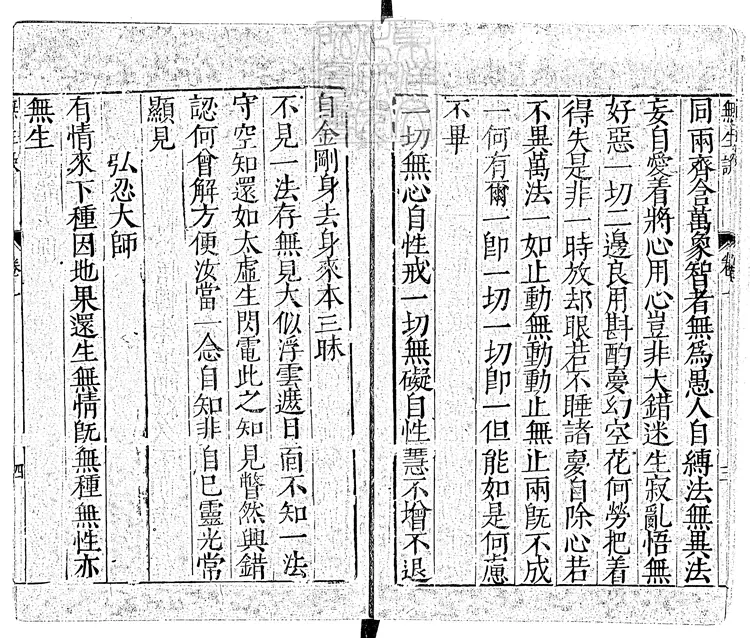 無生訣
卷一
三
同兩齊含萬象智者無爲愚人自縛法無異法
妄自愛着將心用心豈非大錯迷生寂亂悟無
好惡一切二邊良用斟酌夢幻空花何勞把着
得失是非一時放却眼若不睡諸夢自除心若
不異萬法一如止動無動動止無止兩旣不成
一何有爾一卽一切一切卽一但能如是何慮
不畢
一切無心自性戒一切無礙自性慧不增不退
自金剛身去身來本三昧
不見一法存無見大似浮雲遮日面不知一法
守空知還如太虛生閃電此之知見瞥然興錯
認何曾解方便汝當一念自知非自己靈光常
顯見
弘忍大師
有情來下種因地果還生無情旣無種無性亦
無生
卷一
四